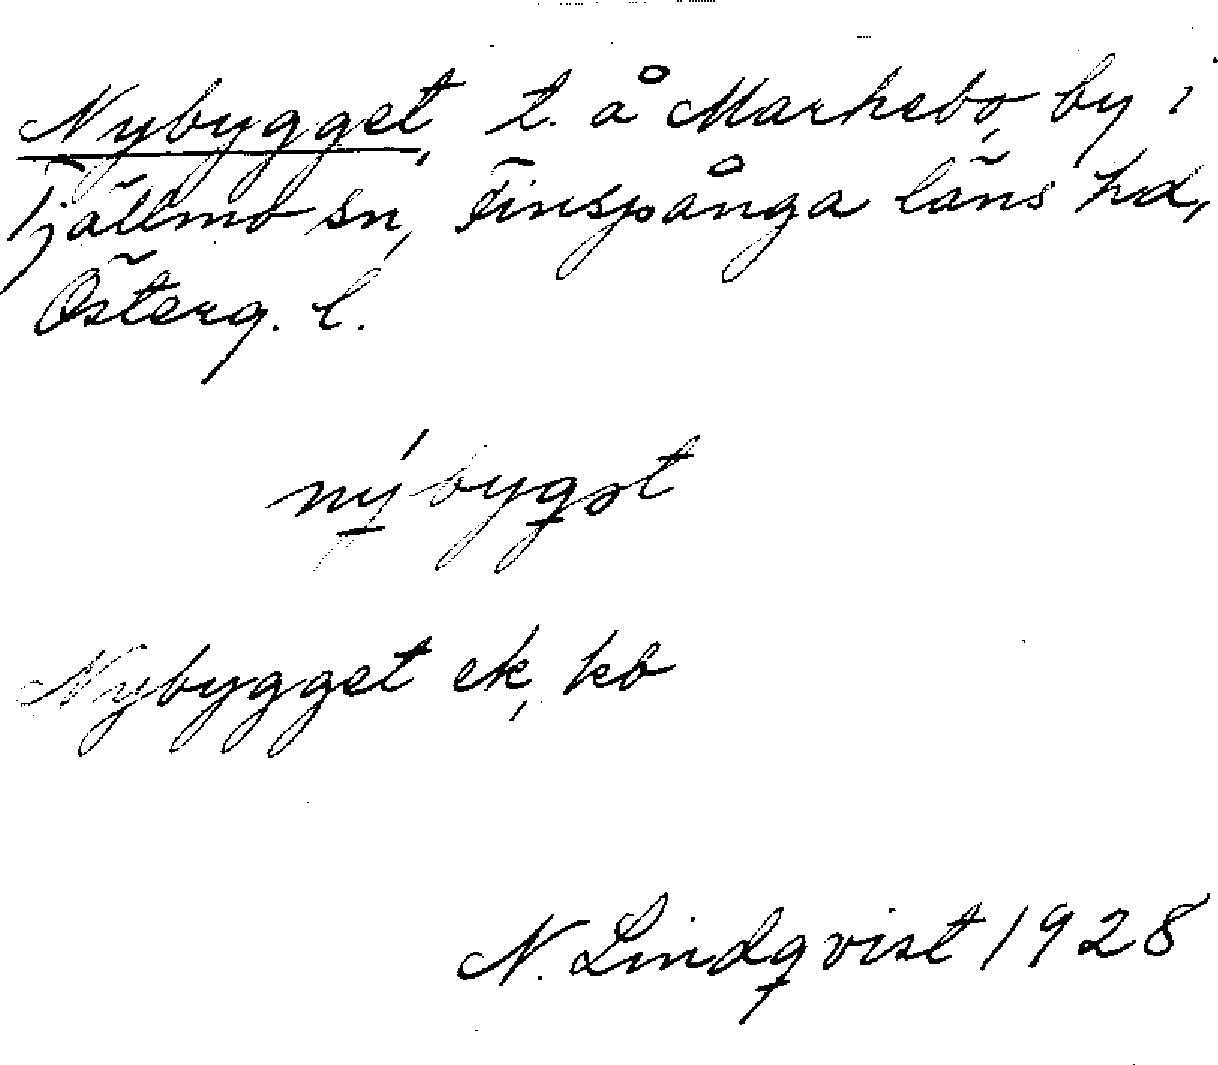 Nybygget, t. å Markebo, by i
Tjällmo sn, Finspånga läns hd,
Österg. l.
Nybygget ek, kb
N. Lindqvist 1928